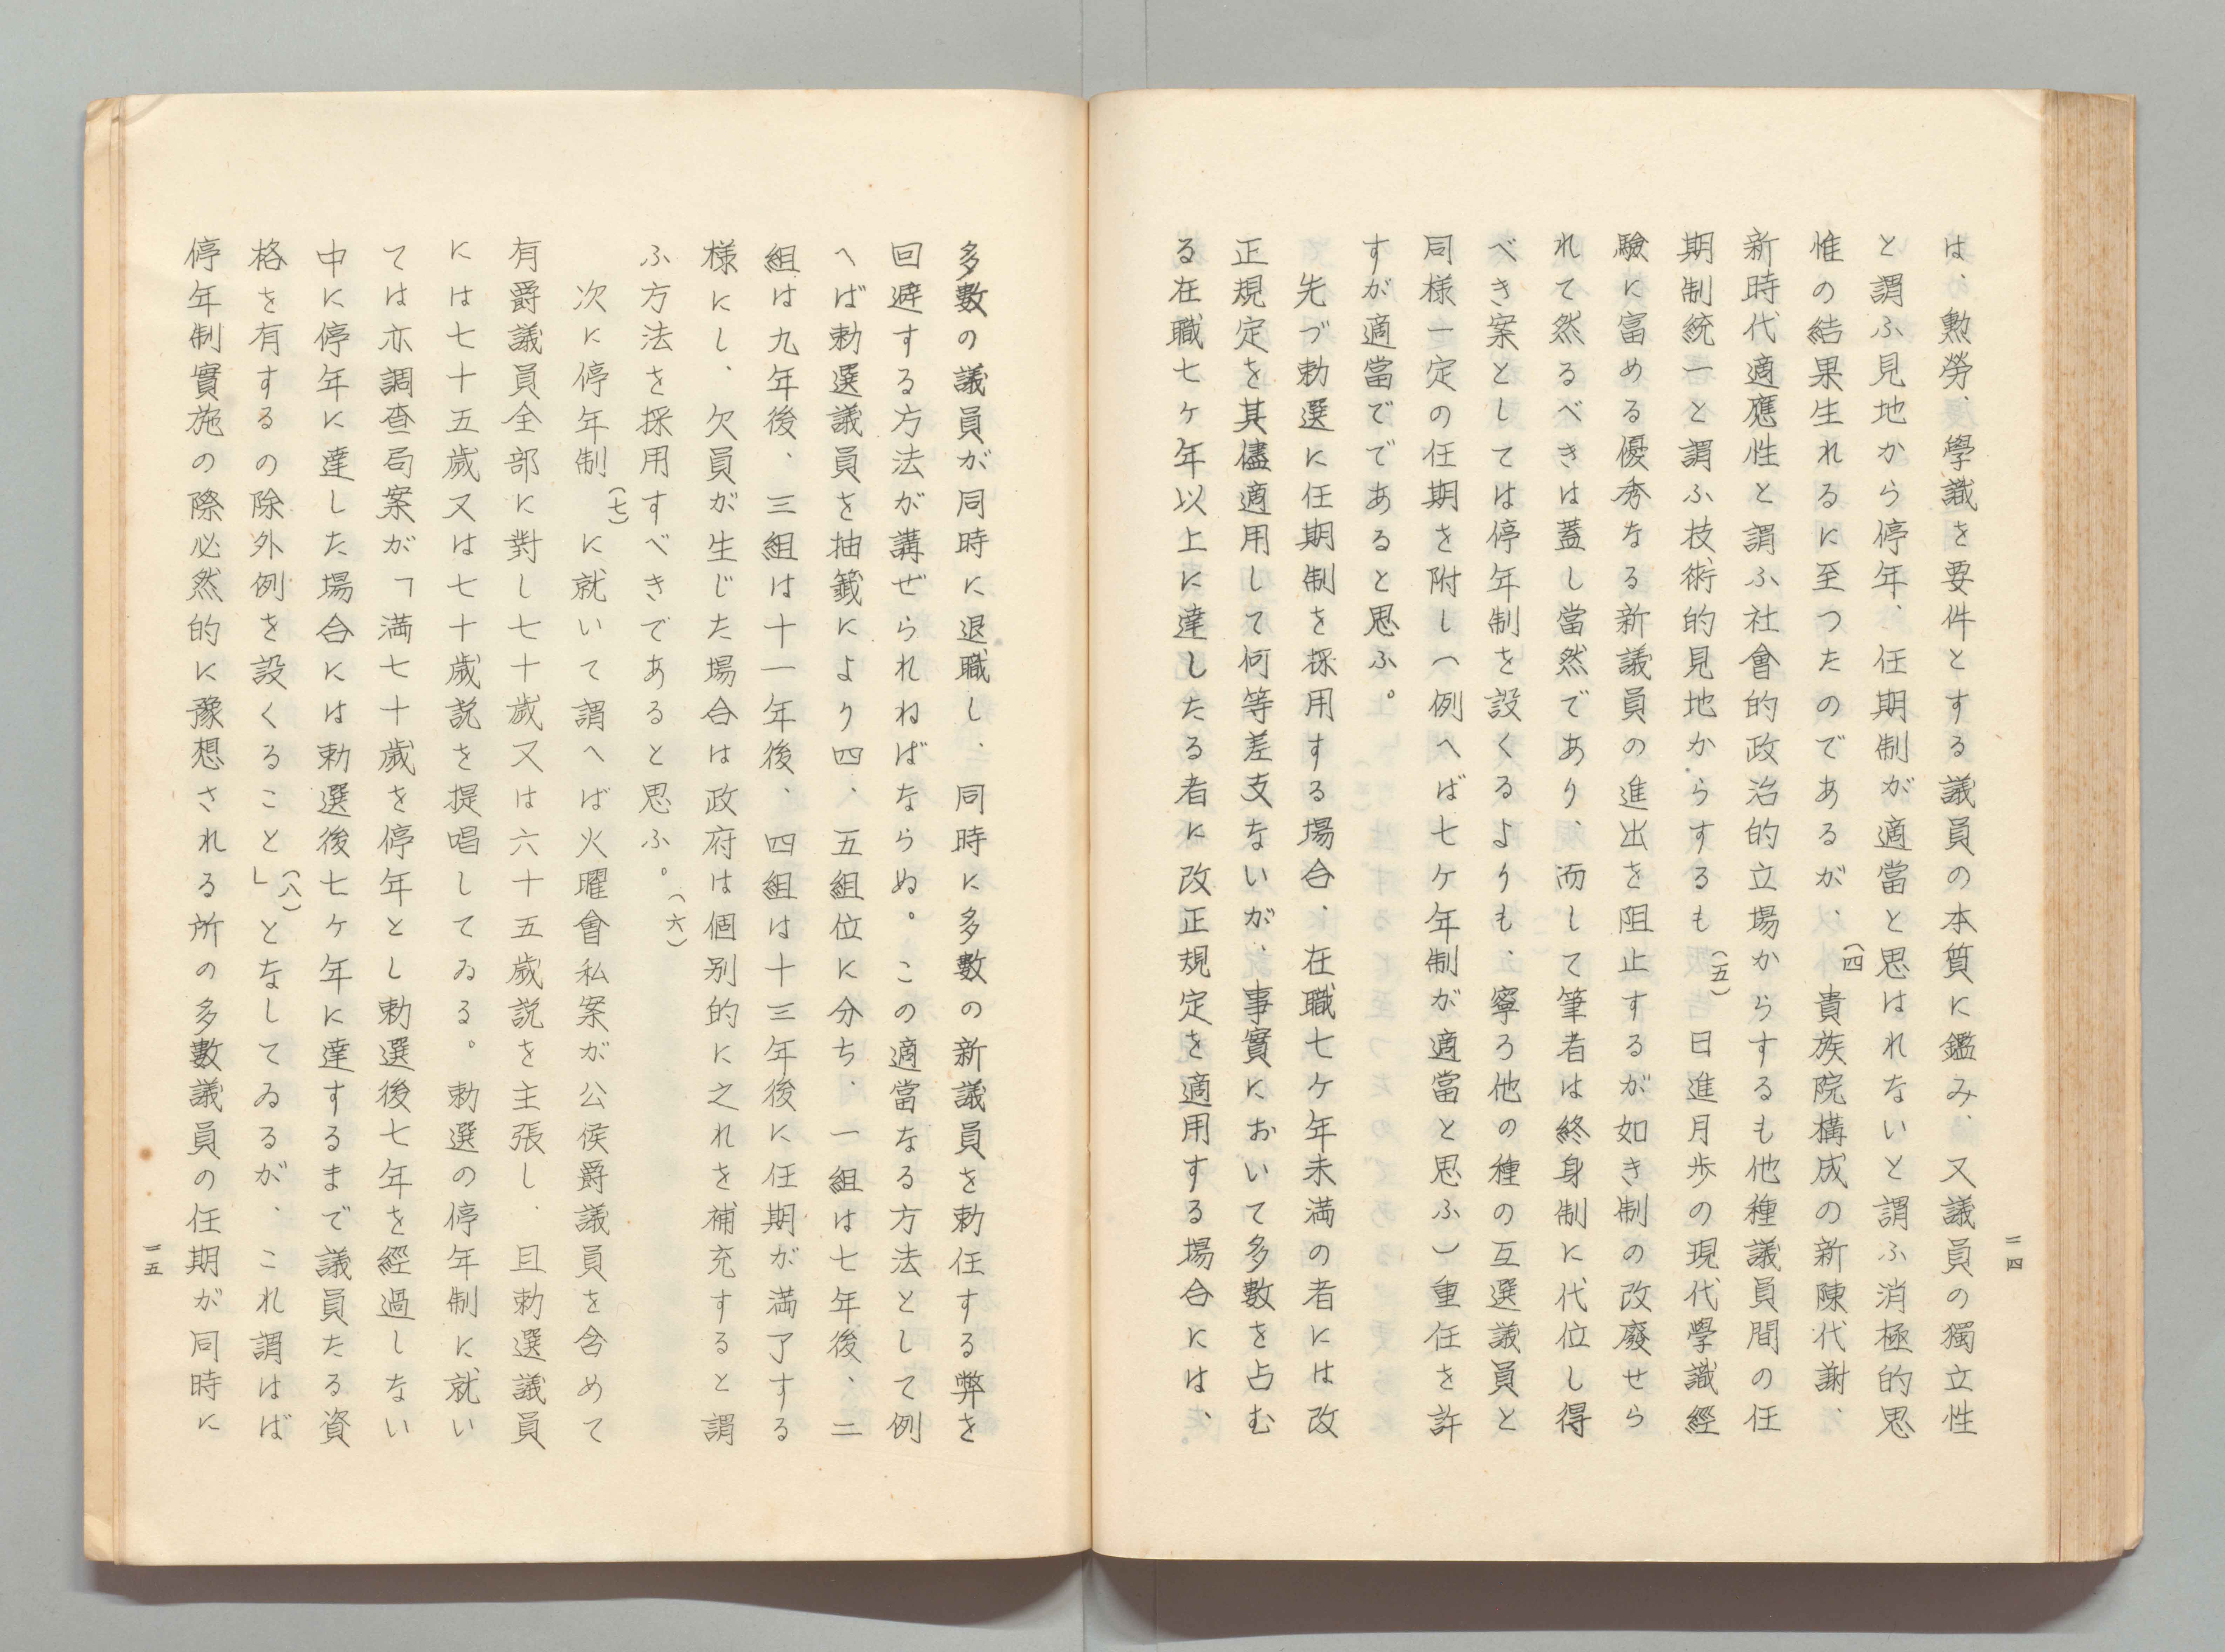 は、勲勞、學識を要件とする議員の本質に鑑み、又議員の獨立性
と謂ふ見地から停年、任期制が適當と思はれないと謂ふ消極的思
惟の結果生れるに至つたのであるが、(四)貴族院構成の新陳代謝、
新時代適應性と謂ふ社會的政治的立場からするも他種議員間の任
期制統一と謂ふ技術的見地からするも(五)日進月歩の現代學識經
驗に富める優秀なる新議員の進出を阻止するが如き制の改廢せら
れて然るべきは蓋し當然であり、而して筆者は終身制に代位し得
べき案としては停年制を設くるよりも、寧ろ他の種の互選議員と
同様一定の任期を附し(例へば七ヶ年制が適當と思ふ)重任を許
すが適當でであると思ふ。
先づ勅選に任期制を採用する場合、在職七ケ年未満の者には改
正規定を其儘適用して何等差支ないが、事實において多數を占む
る在職七ヶ年以上に達したる者に改正規定を適用する場合には、
二四
多數の議員が同時に退職し、同時に多數の新議員を勅任する弊を
回避する方法が講ぜられねばならぬ。この適當なる方法として例
へば勅選議員を抽籤により四、五組位に分ち、一組は七年後、二
組は九年後、三組は十一年後、四組は十三年後に任期が満了する
様にし、欠員が生じた場合は政府は個別的に之れを補充すると謂
ふ方法を採用すべきであると思ふ。(六)
次に停年制(七)に就いて謂へば火曜會私案が公侯爵議員を含めて
有爵議員全部に對し七十歲又は六十五歲説を主張し、且勅選議員
には七十五歲又は七十歲説を提唱してゐる。勅選の停年制に就い
ては亦調査局案が「満七十歲を停年とし勅選後七年を經過しない
中に停年に達した場合には勅選後七ヶ年に達するまで議員たる資
格を有するの除外例を設くること」(八)となしてゐるが、これ謂はば
停年制實施の際必然的に豫想される所の多數議員の任期が同時に
二五